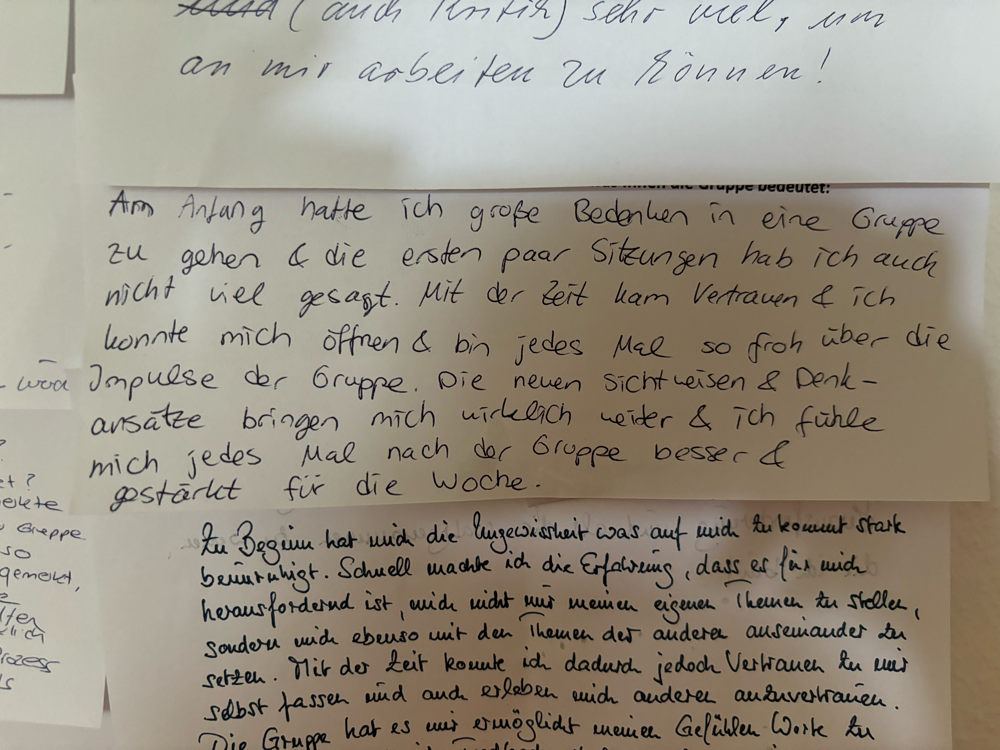 (auch Kritik) sehr viel, um
an mir arbeiten zu können!
die Gruppe bedeutet:
Am Anfang hatte ich große Bedenken in eine Gruppe
zu gehen & die ersten paar Sitzungen hab ich auch
nicht viel gesagt. Mit der Zeit kam Vertrauen & ich
konnte mich öffnen & bin jedes Mal so froh über die
Impulse der Gruppe. Die neuen Sichtweisen & Denk-
ansätze bringen mich wirklich weiter & ich fühle
mich jedes Mal nach der Gruppe besser &
gestärkt für die Woche.
Zu Beginn hat mich die Ungewissheit was auf mich zu kommt stark
beunruhigt. Schnell machte ich die Erfahrung, dass es für mich
herausfordernd ist, mich nicht nur meinen eigenen Themen zu stellen,
sondern mich ebenso mit den Themen der anderen auseinander zu
setzen. Mit der Zeit konnte ich dadurch jedoch Vertrauen zu mir
selbst fassen und auch erleben mich anderen anzuvertrauen.
Die Gruppe hat es mir ermöglicht meinen Gefühlen Worte zu
Gruppe
so
gemerkt,
Prozess